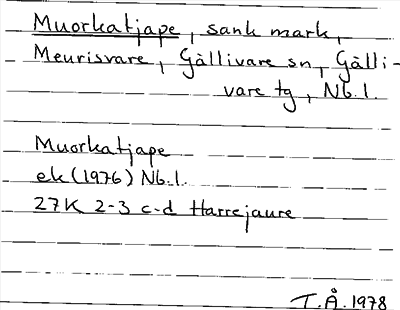 Muorkatjape, sank mark,
Meurisvare, Gällivare sn, Gälli-
vare tg, Nb. l.
Muorkatjape
ek (1976) Nb. l.
27K 2-3 c-d Harrejaure
T. Å. 1978